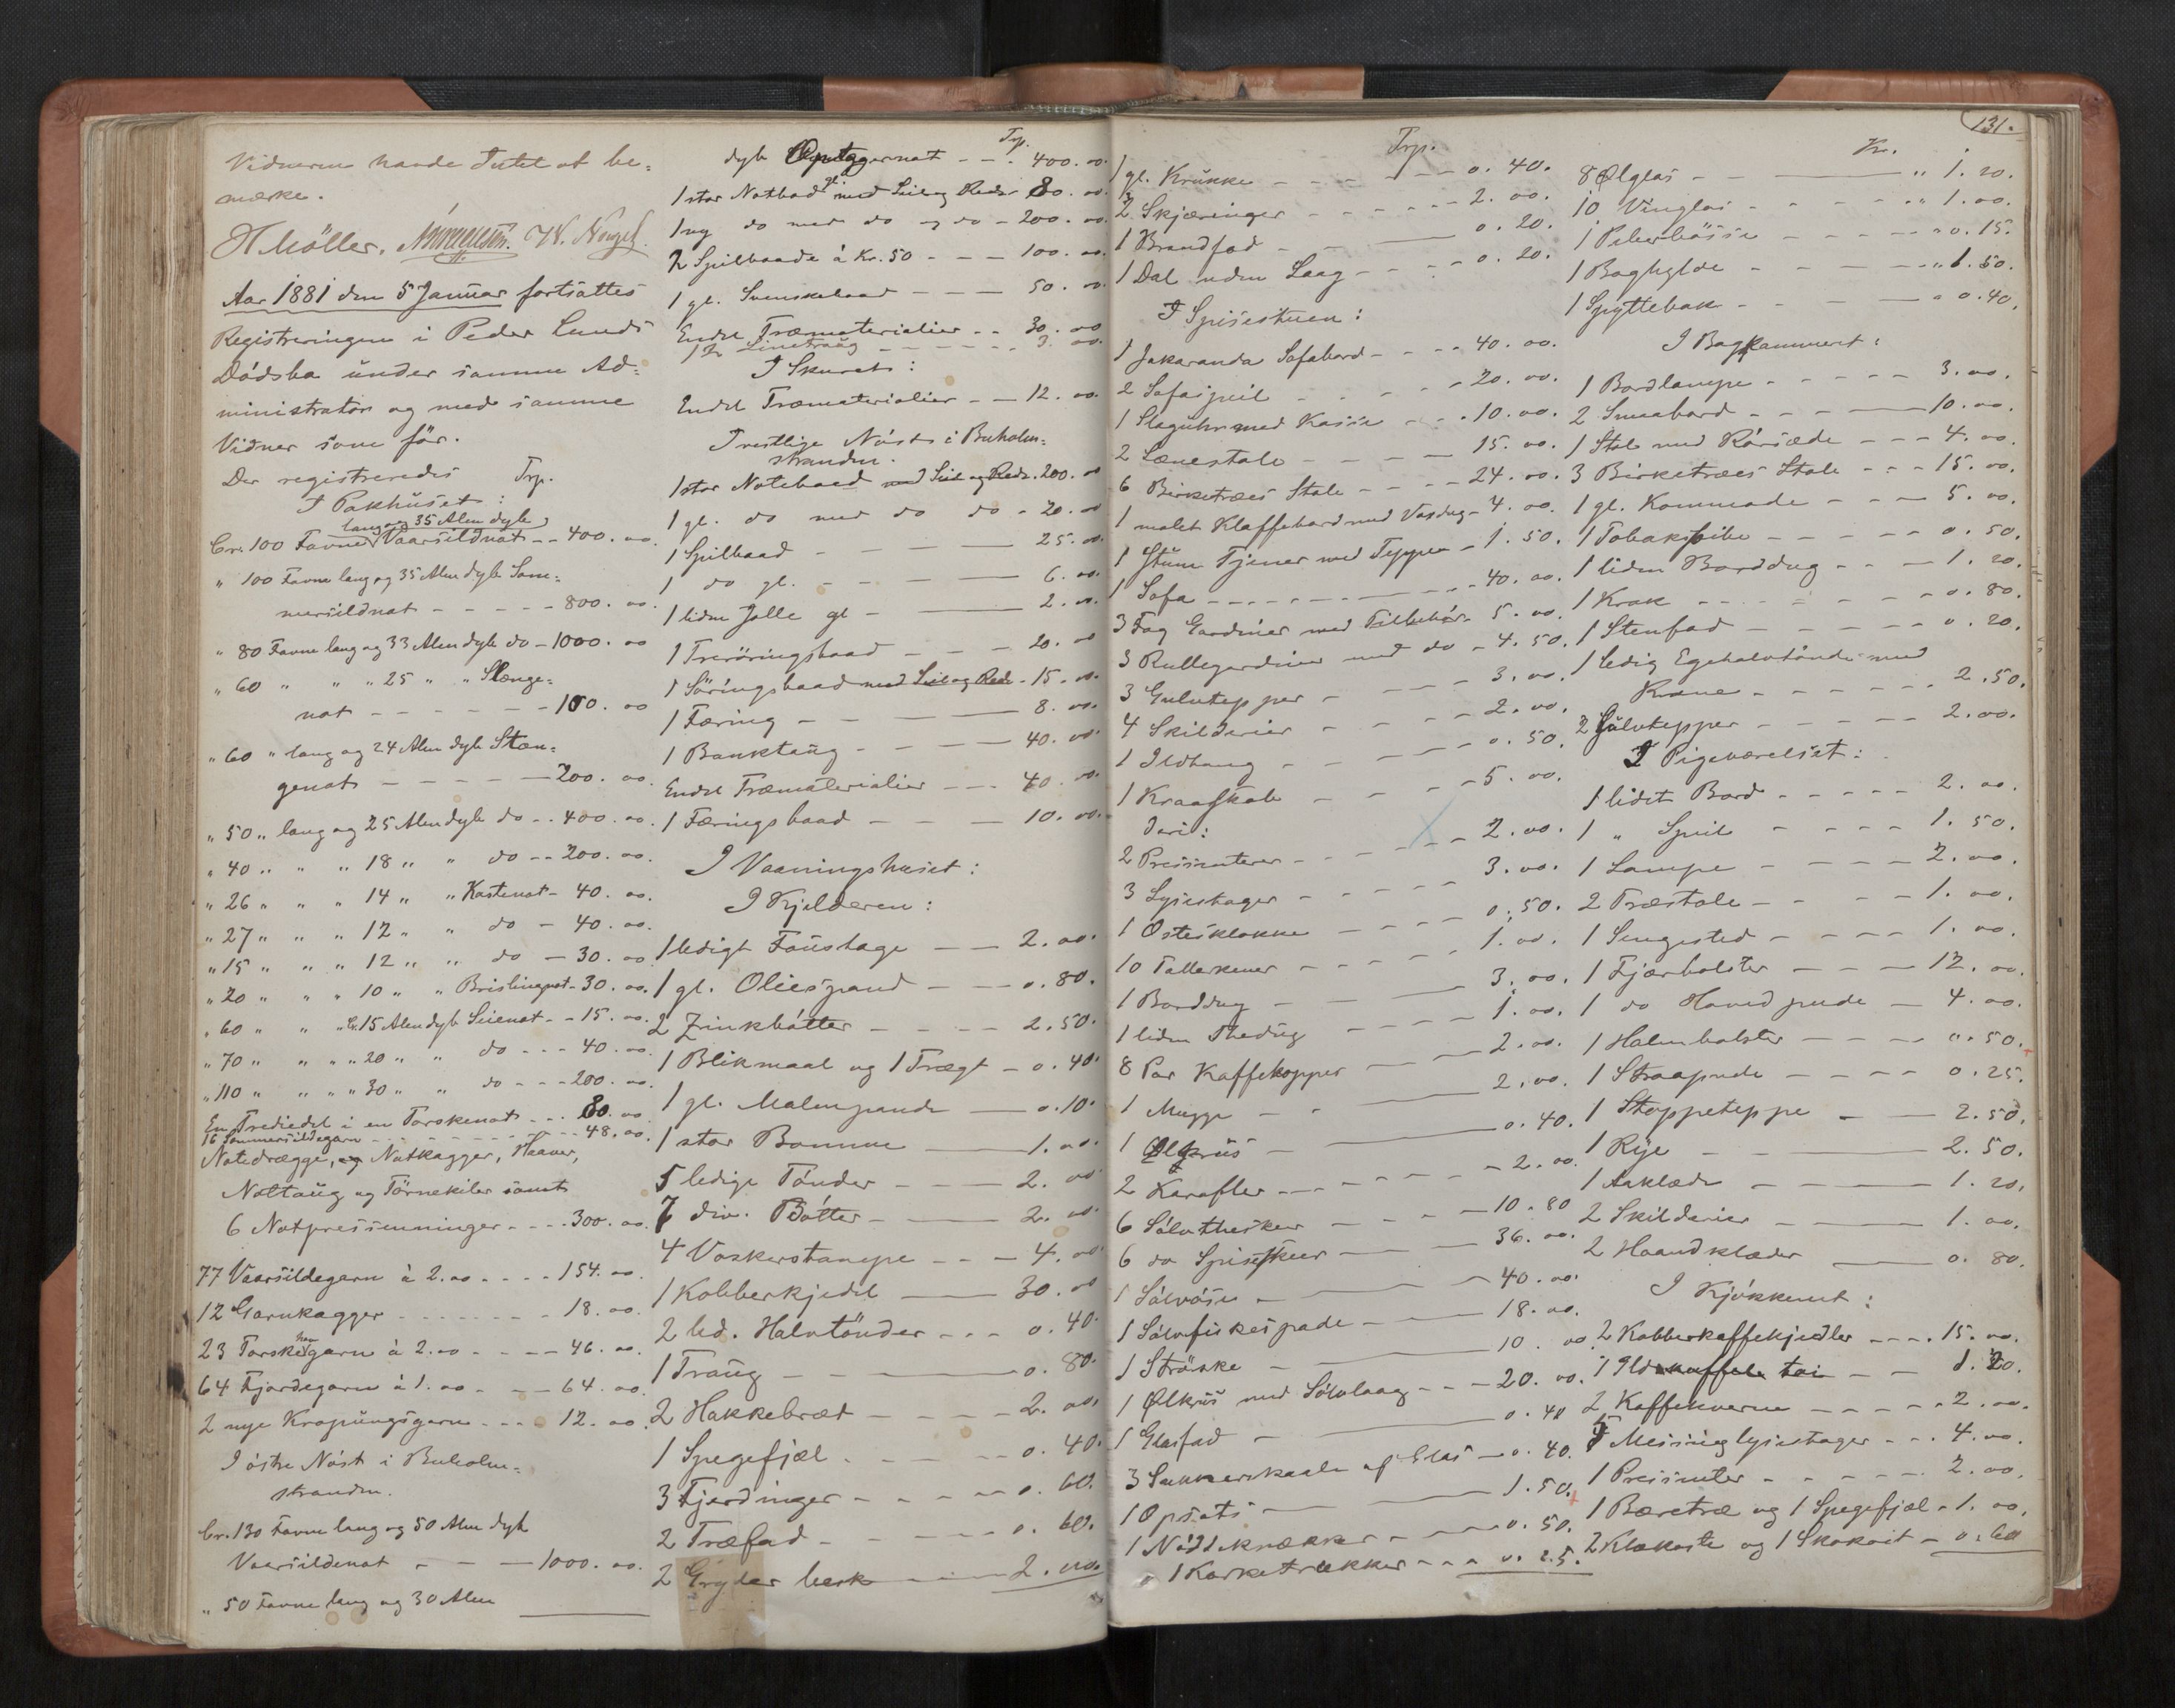 Vidnerne havde Intet at be=
mærke.
H. Möller.
Aar 1881 den 5 Januar fortsattes
Registreringen i Peder Lunds
Dödsbo under samme Ad=
ministrator og med samme
Vidner som för.
Der registreredes Trp.
I Pakhuset:
lang og 35 Alen dyb
Cr. 100 Favne Vaarsildnot -- 400. 00.
" 100 Favne lang og 35 Alen dyb Som=
mersildnot ----- 800. 00.
" 80 Favne lang og 33 Alen dyb do - 1000. 00
" 60 " " " 25 " " Slænge=
not ------ 100. 00
" 60 " lang og 24 Alen dyb Stæn=
genot ----- 200. 00.
" 50 " lang og 25 Alen dyb do -- 400. 00.
" 40 " " " 18 " " do -- 200. 00.
" 26 " " " 14 " " Kastenot - 40. 00.
" 27 " " " 12 " " do - 40. 00.
" 15 " " " 12 " " do - 30. 00
" 20 " " " 10 " " Brislingnot - 30. 00.
" 60 " " " Cr. 15 Alen dyb Seienot -- 15. 00.
" 70 " " " 20 " " do --- 40. 00.
" 110 " " " 30 " " do --- 200. 00.
En Trediedel i en Torskenot --- 80. 00
16 Sommersildegarn ------ 48. 00.
Notedrægge, og Notkagger, Haaver,
Nottaug og Törnekiler samt
6 Notpressenninger ---- 300. 00.
77 Vaarsildegarn à 2.00 ---- 154. 00.
12 Garnkagger ------ 18. 00.
23 Torskegarn à 2.00 ---- 46. 00.
64 Fjordegarn à 1.00 --- 64. 00.
2 nye Krapungsgarn --- 12. 00.
I östre Nöst i Buholm=
stranden.
Cr. 130 Favne lang og 50 Alen dyb
Vaarsildenot --- 1000. 00.
" 50 Favne lang og 30 Alen
Trp.
dyb Optaggernot --- 400. 00.
1 stor Notbaad gl. med Seil og Rede 80. 00
1 ny do med do og do - 200. 00
2 Spilbaade à Kr. 50 --- 100. 00.
1 gl. Svenskebaad --- 50. 00
Endel Træmaterialier -- 30. 00
12 Linetraug ------ 3. 00.
I Skuret:
Endel Træmaterialier -- 12. 00.
I vestlige Nöst i Buholm=
stranden.
1 stor Notebaad med Seil og Rede. 200. 00
1 gl. do med do do - 20. 00
1 Spilbaad ---- 25. 00.
1 do gl. ---- 6. 00.
1 liden Jolle gl --- 2. 00.
1 Treröringsbaad --- 20. 00
1 Söringsbaad med Seil og Rede - 15. 00.
1 Færing --- 8. 00.
1 Banktaug ---- 40. 00.
Endel Træmaterialier --- 40. 00.
1 Færingsbaad --- 10. 00.
I Vaaningshuset:
I Kjelderen:
1 ledigt Foustage --- 2. 00.
1 gl. Oliespand --- 0. 80.
2 Zinkbötter ---- 2. 50.
1 Blikmaal og 1 Trægt - 0. 40.
1 gl. Malmpande --- 0. 10.
1 stor Bomme --- 1. 00.
5 ledige Tönder --- 2. 00
7 div. Bötter --- 2. 00.
4 Vaskerstampe --- 4. 00
1 Kobberkjedel --- 30. 00
2 led. Halvtönder --- 0. 40.
1 Traug --- 0. 80.
2 Hakkebræt ---- 2. 00.
1 Spegefjæl ---- 0. 40.
3 Fjerdinger ---- 0. 60.
2 Træfad ---- 0. 60.
2 Gryder --- 2. 00.
131.
Trp.
1 gl. Krukke ----- 0. 40.
2 Skjæringer ----- 2. 00.
1 Brandfad --- 0. 20.
1 Dal uden Laag ---- 0. 20.
I Spisestuen:
1 Jakaranda Sofabord --- 40. 00.
2 Sofaspeil ---- 20. 00.
1 Slaguhr med Kasse --- 10. 00.
2 Lænestole ---- 15. 00.
6 Birketræes Stole --- 24. 00.
1 malet Klaffebord med Voxdug - 4. 00.
1 Stum Tjener med Teppe - 1. 50.
1 Sofa ------ 40. 00.
3 Fag Gardiner med Tilbehör 5. 00.
3 Rullegardiner med do - 4. 50.
3 Gulvtepper ---- 3. 00.
4 Skilderier ---- 2. 00.
1 Ildtang ---- 0. 50.
1 Kraaskab ---- 5. 00.
deri:
2 Presenterer ---- 2. 00.
3 Lysestager ---- 3. 00.
1 Osteklokke ---- 0. 50.
10 Tallerkener ---- 1. 00.
1 Borddug --- 3. 00.
1 liden Thedug --- 1. 00.
8 Par Kaffekopper --- 2. 00.
1 Mugge --- 2. 00.
1 Ölkrus --- 0. 40.
2 Karafler ----- 2. 00.
6 Sölvtheskeer ---- 10. 80
6 do Spiseskeer --- 36. 00.
1 Sölvöse --- 40. 00.
1 Sölvfiskespade --- 18. 00.
1 Ströske --- 10. 00
1 Ölkrus med Sölvlaag --- 20. 00.
1 Glasfad --- 0. 40
3 Sukkerskaale af Glas - 0. 40.
1 Opsats --- 1. 50.
1 Nöddeknækker ---- 0. 50.
1 Korketrækker --- 0. 25.
Kr.
8 Ölglas --- " 1. 20.
10 Vinglas ---- " 1. 00.
1 Peberbösse ---- " 0. 15.
1 Boghylde ---- " 1. 50.
1 Spyttebak --- " 0. 40.
I Bagkammeret:
1 Bordlampe ----- 3. 00.
2 Smaabord ---- 10. 00.
1 Stol med Rörsæde --- 4. 00.
3 Birketræes Stole --- 15. 00.
1 gl. Kommode --- 5. 00.
1 Tobakspibe ---- 0. 50.
1 liden Borddug --- 1. 20.
1 Krak ----- 0. 80.
1 Stenfad ----- 0. 20.
1 ledig Egehalvtönde med
Krane ----- 2. 50.
2 Gulvtepper ---- 2. 00.
I Pigeværelset:
1 lidet Bord ---- 2. 00.
1 " Speil ---- 1. 50.
1 Lampe ---- 2. 00.
2 Træstole ---- 1. 00.
1 Sengested ---- 1. 00.
1 Fjærbolster --- 12. 00.
1 do Hovedpude - 4. 00.
1 Halmbolster ---- 0. 50.
1 Straapude ---- 0. 25.
1 Stoppeteppe --- 2. 50.
1 Rye --- 2. 50.
1 Aaklæde --- 1. 20.
2 Skilderier --- 1. 00.
2 Haandklæder --- 0. 80.
I Kjökkenet:
2 Kobberkaffekjedler ---- 15. 00.
2 Kaffekværne ----- 2. 00.
5 Messinglysestager --- 4. 00.
1 Presenter ----- 2. 00.
1 Bæretræ og 1 Spegefjæl - 1. 00.
2 Klækoste og 1 Skokost - 0. 60